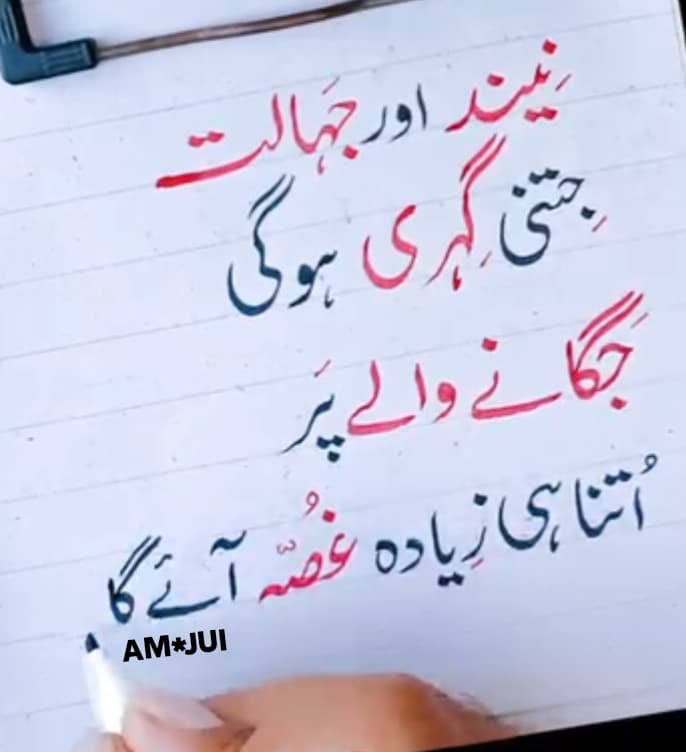 نِیند اور جَہالت
جِتنی گہری ہوگی
جَگانے والے پَر
اُتنا ہی زِیادہ غُصّہ آئے گا
AM*JUI